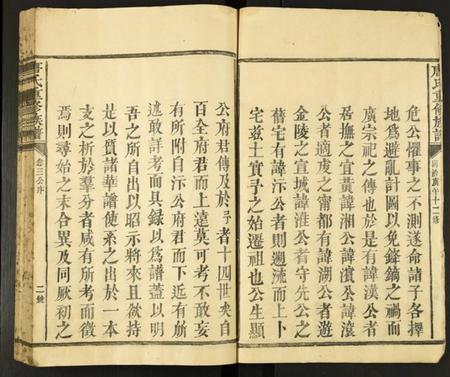 唐氏重修族譜
危公懼事之不測遂命諸子各擇
地爲避亂計圖以免鋒鏑之禍而
廣宗祀之傳也於是有諱漢公者
居撫之宜黃諱湘公諱濱公諱滾
公者適虔之甯都有諱湖公者遊
金陵之宣城諱淮公者守先公之
舊宅有諱汸公者則遡流而上卜
宅茲土實予之始遷祖也公生顯
公府君傳及於予者十四世矣自
百全府君而上遠莫可考不敢妄
有所附自汸公府君而下近有所
述敢詳考而具録以爲譜蓋以明
吾之所自出以昭示將來且欲持
是以質諸華譜使系之出於一本
支之析於羣分者咸有所考而徵
焉則尋始之未合異及同厥初之
唐氏重修族譜
卷三公序
二號